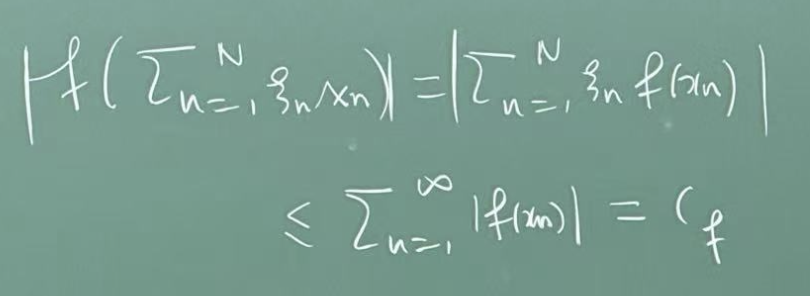 |f(Σₙ₌₁ᴺ ξₙxₙ)| = |Σₙ₌₁ᴺ ξₙ f(xₙ)|
≤ Σₙ₌₁^∞ |f(xₙ)| = C_f